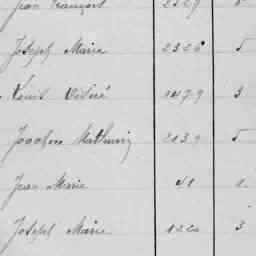 Jean François 2329
Joseph Marie 2326 5
Louis Désiré 1479 3
Joachim Mathurin 2139 5
Jean Marie 41 1
Joseph Marie 122 3